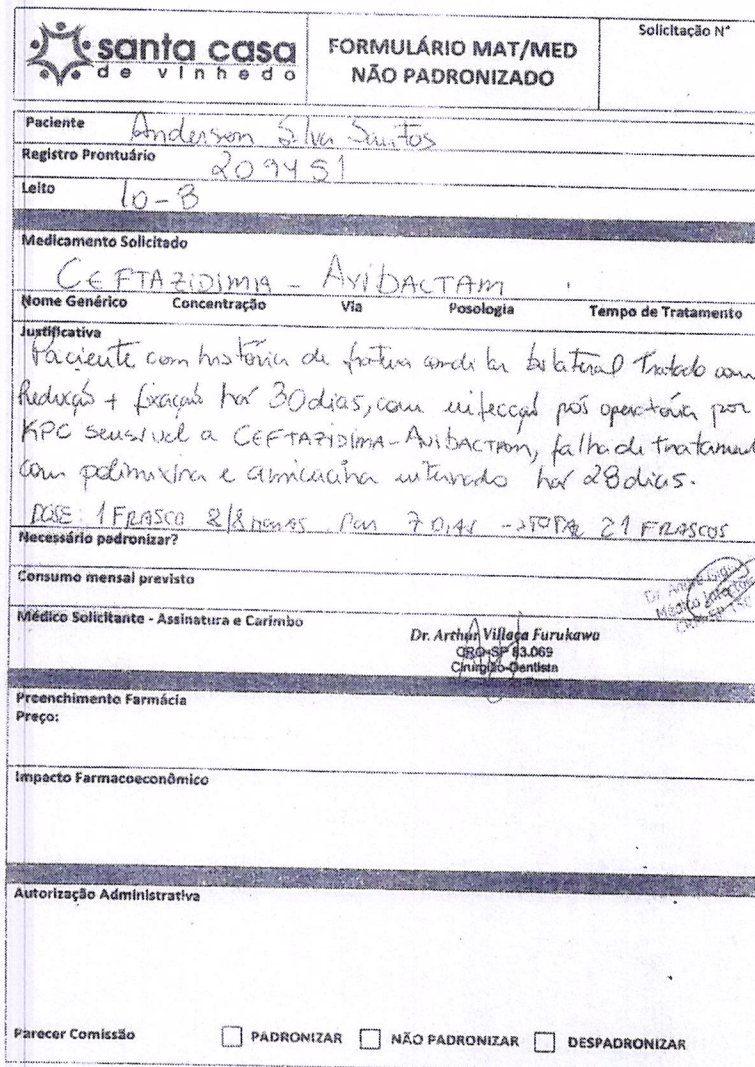 santa casa
de vinhedo
FORMULÁRIO MAT/MED
NÃO PADRONIZADO
Solicitação N°
Paciente Anderson Silva Santos
Registro Prontuário 209451
Leito 10-B
Medicamento Solicitado
CEFTAZIDIMA - AVIBACTAM
Nome Genérico Concentração Via Posologia Tempo de Tratamento
Justificativa
Paciente com história de fratura condilar bilateral tratado com
Redução + fixação há 30 dias, com infecção pós operatória por
KPC sensível a CEFTAZIDIMA-AVIBACTAM, falha de tratamento
com polimixina e amicacina internado há 28 dias.
DOSE: 1 FRASCO 8/8 horas por 7 dias -> TOTAL 21 FRASCOS
Necessário padronizar?
Consumo mensal previsto
Médico Solicitante - Assinatura e Carimbo
Dr. Arthur Villaça Furukawa
CRO-SP 83.069
Cirurgião-Dentista
Preenchimento Farmácia
Preço:
Impacto Farmacoeconômico
Autorização Administrativa
Parecer Comissão PADRONIZAR NÃO PADRONIZAR DESPADRONIZAR